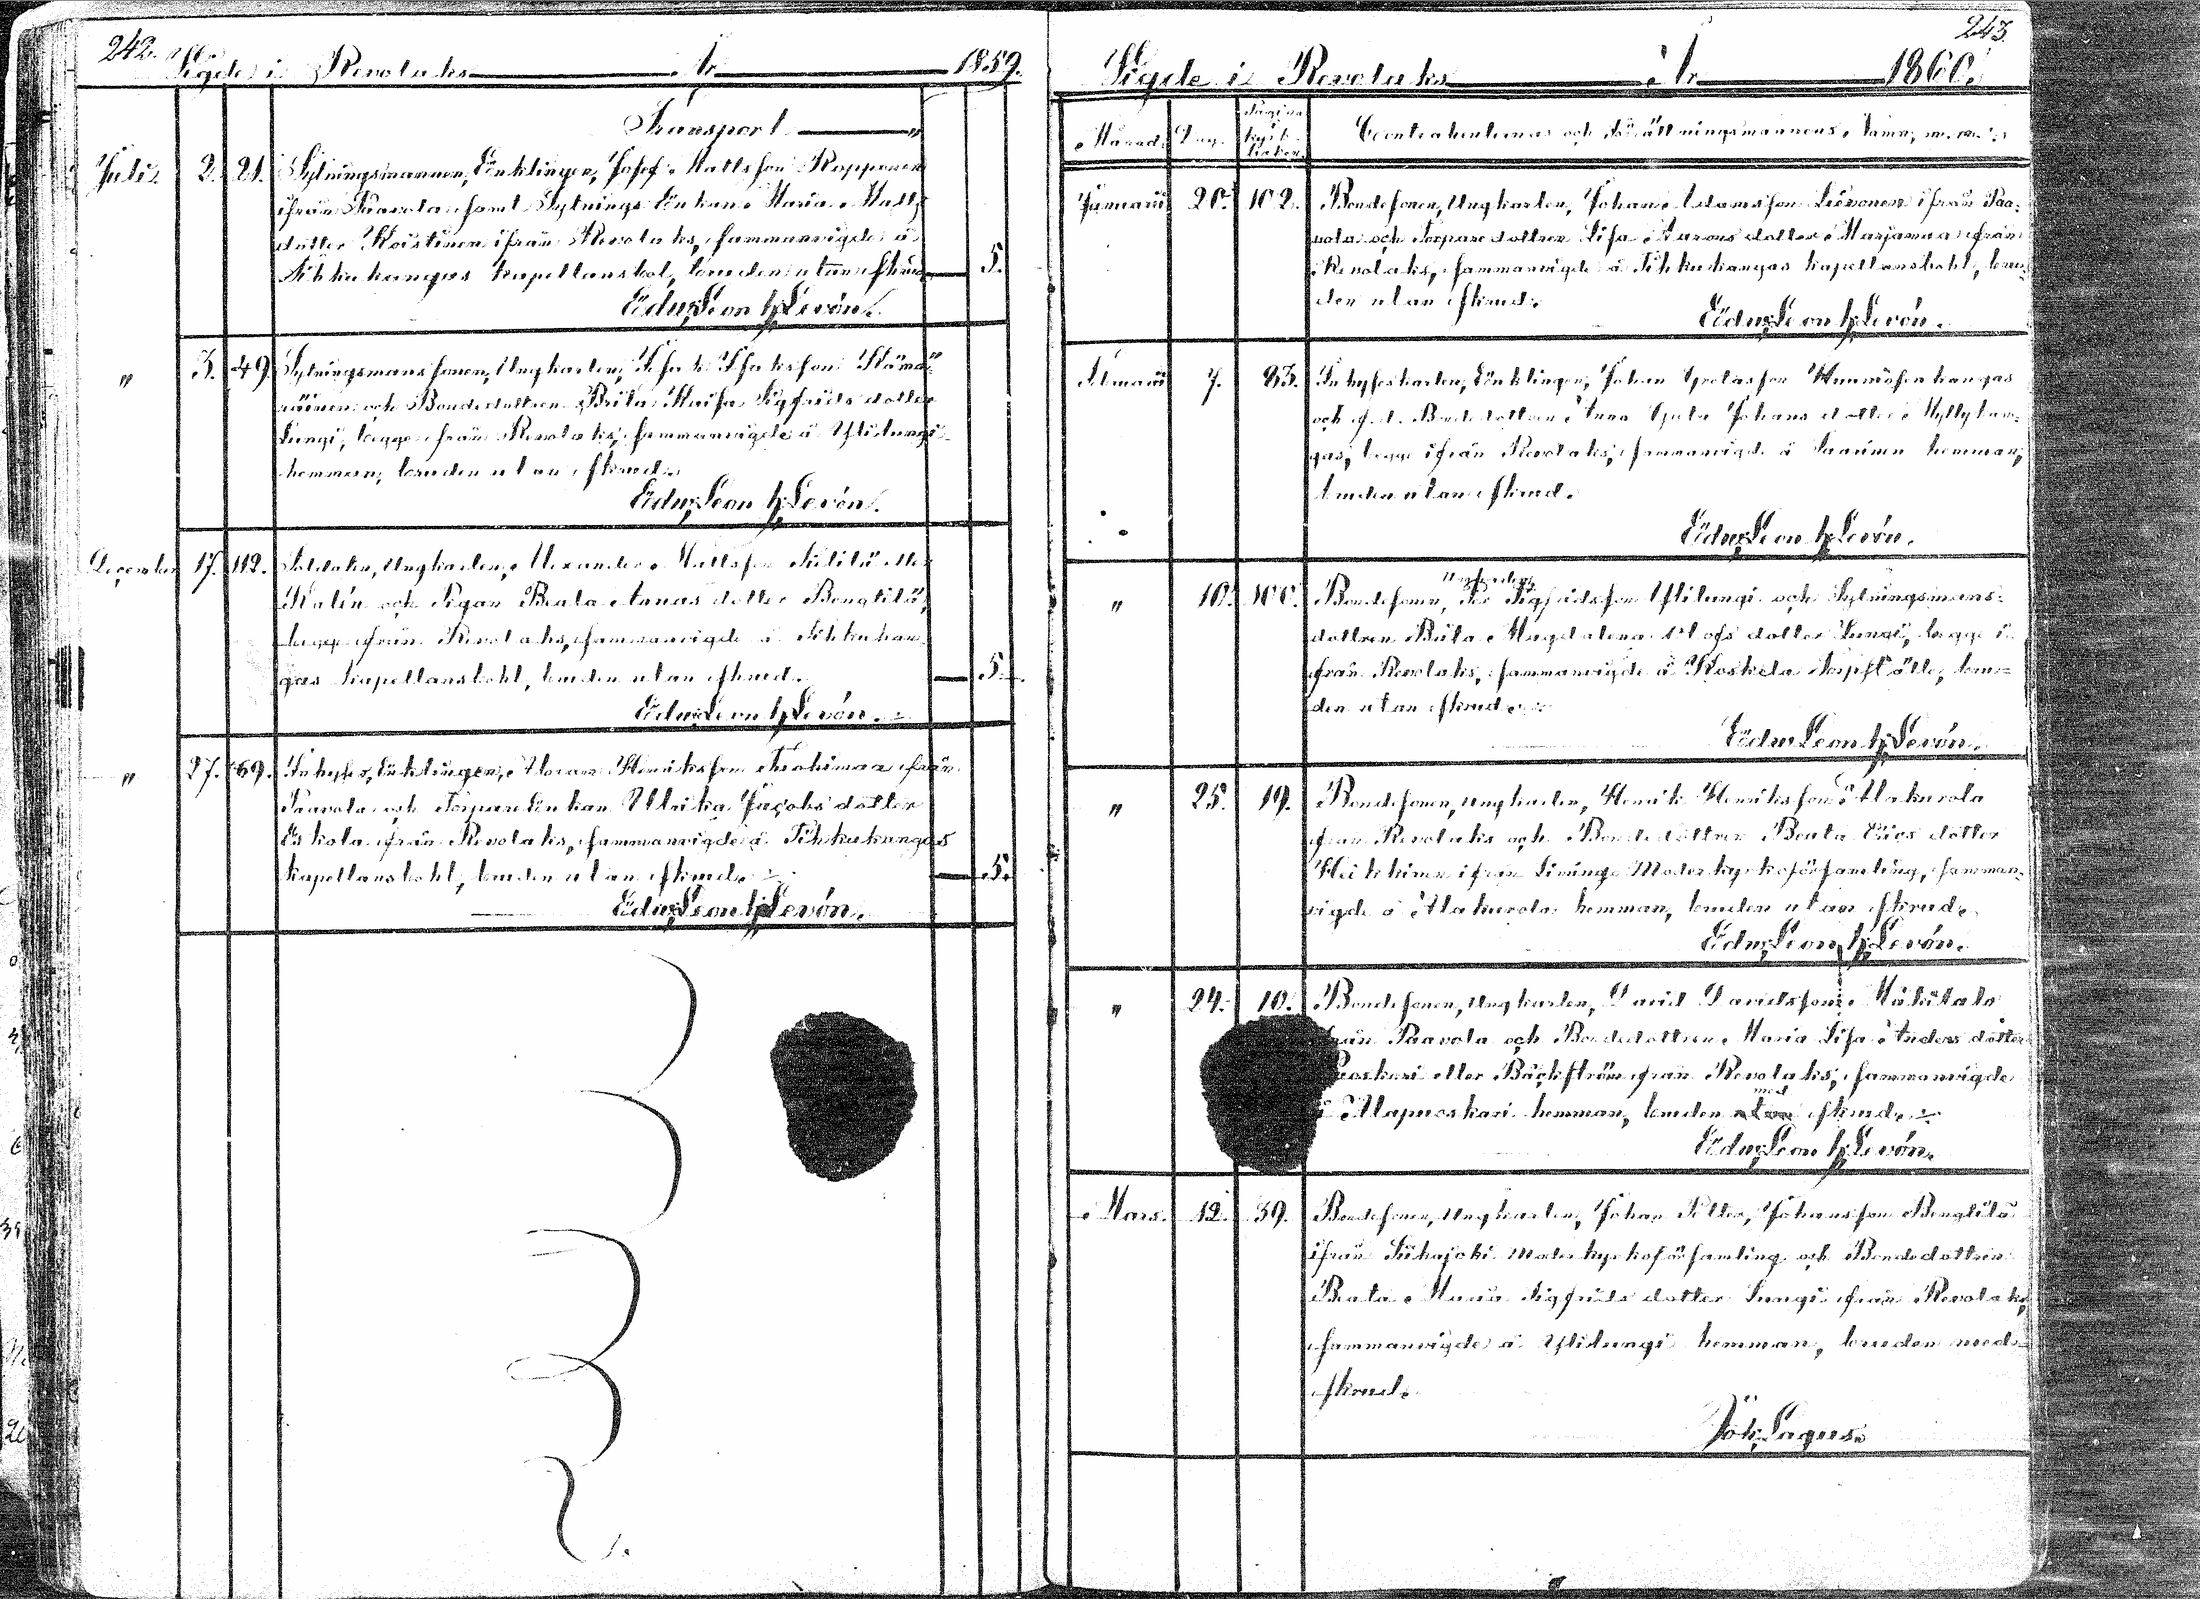 242.
Vigde i Revolaks År 1859.
Transport "
Julii 2. 21. Sytningsmannen, Enklingen, Josef Mattsson Rapponen
ifrån Paavola samt Sytnings Enkan Maria Matts
dotter Koistinen ifrån Revolaks, sammanvigde å
Tihkukangas kapellansbol, bruden utan skrud 5.
Edw. Leon h. Levón.
" 3. 49. Sytningsmanssonen, Ungkarlen, Isak Isaksson Hämä-
räinen och Bondedottren Brita Kaisa Sigfrids dotter
Lungi, begge från Revolaks, sammanvigde å Ylilungi
hemman, bruden utan skrud.
Edw. Leon h. Levón.
December 17. 112. Soldaten, Ungkarlen, Alexander Mattsson eller
och Pigan Beata dotter Bengtilä,
begge från Revolaks, sammanvigde å Tihkukan-
gas kapellansbohl, bruden utan skrud. 5.
Edw. Leon h. Levón.
" 27. 69. Inhyses, Enklingen, Henriksson från
Paavola och Torpare Enkan Ulrika Jacobs dotter
Eskola från Revolaks, sammanvigde å Tihkukangas
kapellansbohl, bruden utan skrud. 5.
Edw. Leon h. Levón.
243.
Vigde i Revolaks År 1860.
Månad. Dag. Pagina i kyrk-boken Contrahenternas och Förrättningsmannens Namn, m. m.
Januarii 20. 102. Bondesonen, Ungkarlen, Johan Adamsson ifrån Paa-
vola och Torpare dottren Lisa Aarons dotter Marjamaa från
Revolaks, sammanvigde å Tihkukangas kapellansbohl, bru-
den utan skrud.
Edw. Leon h. Levón.
Februarii 7. 83. Inhyseskarlen, Enklingen, Johan
och f. d. Bondedottren Anna Greta Johans dotter Myllykan-
gas, begge ifrån Revolaks, sammanvigde å hemman,
bruden utan skrud.
Edw. Leon h. Levón.
" 10. 100. Bondesonen, Ungkarlen, Per Sigfridsson Ylilungi och Sytningsmans-
dottren Brita Magdalena Olofs dotter Lungi, begge i-
från Revolaks, sammanvigde å Koskela Torpställe, bru-
den utan skrud.
Edw. Leon h. Levón.
" 25. 19. Bondesonen, Ungkarlen, Henrik Henriksson Alakurola
från Revolaks och Bondedottren Beata Erics dotter
Heikkinen ifrån Limingo Moderkyrkoförsamling, samman-
vigde å Alakurola hemman, bruden utan skrud.
Edw. Leon h. Levón.
" 24. 10. Bondesonen, Ungkarlen, David Davidsson Mäkitalo
från Paavola och Bondedottren Maria Lisa Anders dotter
eller Bäckström från Revolaks, sammanvigde
å hemman, bruden med skrud.
Edw. Leon h. Levón.
Mars. 12. 39. Bondesonen, Ungkarlen, Johan Petter, Johansson Bengtilä
ifrån Siikajoki moderkyrkoförsamling och Bondedottren
Beata Maria Sigfrids dotter Lungi från Revolaks,
sammanvigde å Ylilungi hemman, bruden med
skrud.
Joh. Lagus.